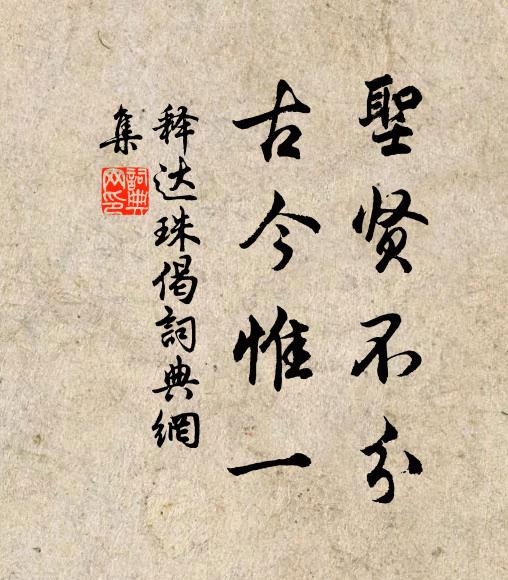 聖贤不分
古今惟一
释达珠偈詞典網
集
詞典網印